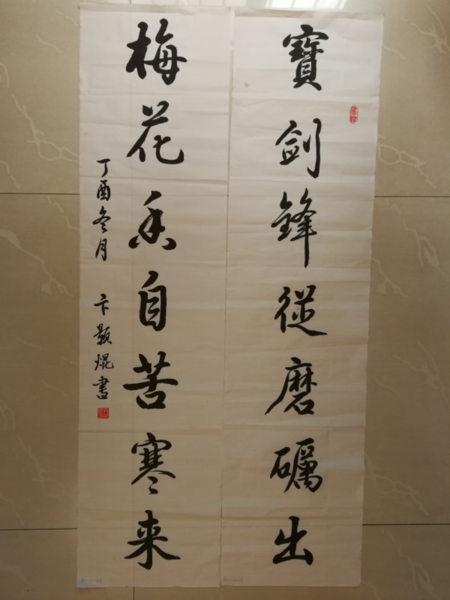 寶劍鋒從磨礪出
梅花香自苦寒来
丁酉冬月 卞影焜書